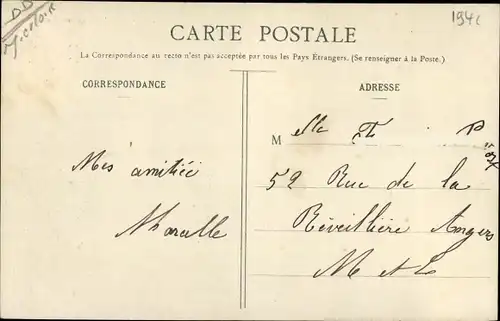 CARTE POSTALE
La Correspondance au recto n'est pas acceptée par tous les Pays Étrangers. (Se renseigner à la Poste.)
CORRESPONDANCE
ADRESSE
Mes amitiés
Marcelle
Mlle
52 Rue de la
Réveillière Angers
M et L